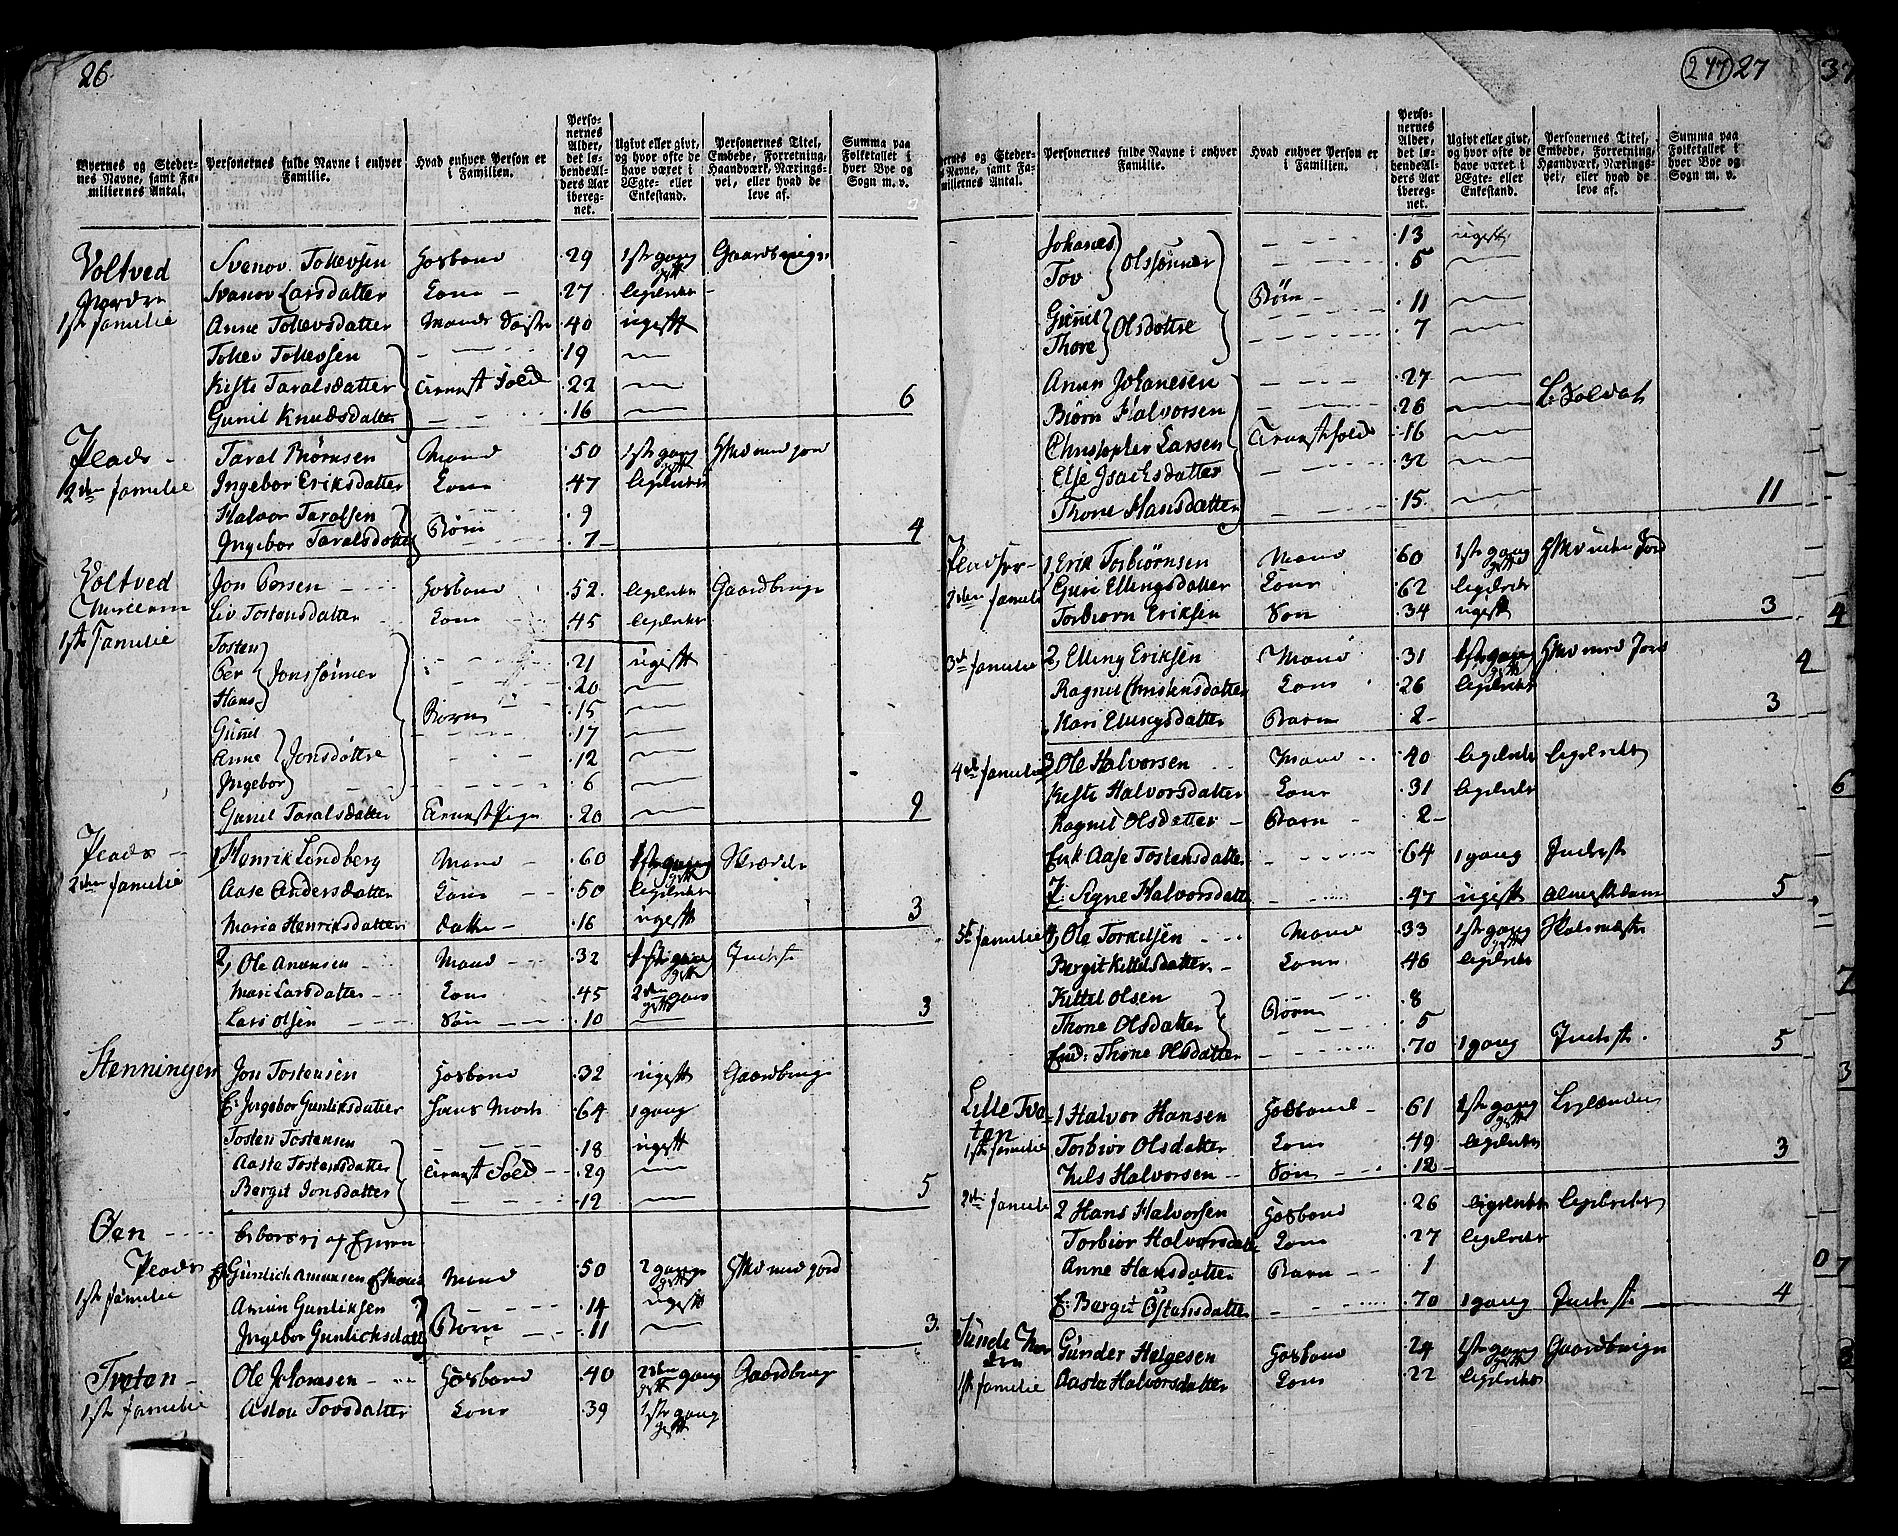 26.
Byernes og Steder-
nes Navne, samt Fa-
miliernes Antal.
Personernes fulde Navne i enhver
Familie.
Hvad enhver Person er
i Familien.
Perso-
nernes
Alder,
det lø-
bende Al-
ders Aar
ibereg-
net.
Ugivt eller givt,
og hvor ofte de
have været i
Ægte- eller
Enkestand.
Personernes Titel,
Embede, Forretning,
Haandværk, Nærings-
vei, eller hvad de
leve af.
Summa paa
Folketallet i
hver Bye og
Sogn m. v.
Voltved Svenov Tollevsen Hosbond 29 1ste gang gift Gaardbruger
1ste familie Svanov Larsdatter Kone 27 ligeledes
Anne Tollevsdatter Mands Søster 40 ugift
Tollev Tollevsen 19
Kisti Taralsdatter tienest Folk 22
Gunil Knudsdatter 16 6
Plads Taral Biørnsen Mand 50 1ste gang gift Hmd med jord
2den familie Ingebor Eriksdatter Kone 47 ligeledes
Halvor Taralsen Børn 9
Ingebor Taralsdatter 7 4
Voltved Jon Persen Hosbond 52 ligeledes Gaardbruger
Liv Tostensdatter Kone 45 ligeledes
1ste Familie Tosten
Per Jonssønner 21 ugift
Hans 20
Børn 15
Gunil 17
Anne Jonsdøttre 12
Ingebor 6
Gunil Taralsdatter tienestPige 20 9
Plads 1 Henrik Lindberg Mand 60 1ste gang gift Skræder
2den familie Aase Andersdatter Kone 50 ligeledes
Maria Henriksdatter datter 16 ugift 3
2, Ole Amunsen Mand 32 1ste gang gift Inderst
Mari Larsdatter Kone 45 2den gang gift
Lars Olsen Søn 10 3
Stenningen Jon Tostensen Hosbond 32 ugift Gaardbruger
E: Ingebor Gunliksdatter Hans Moder 64 1 gang
Tosten Tostensen 18 ugift
Aaste Tostensdatter tienest Folk 29
Bergit Jonsdatter 12 5
Øen
Plads Gunlich Amunsen Mand 50 2 gange gift Hmd med jord
1ste familie Amun Gunliksen Børn 14 ugift
Ingebor Gunlichsdatter 11 3.
Tveten Ole Johansen Hosbond 40 2den gang gift Gaardbruger
1ste familie Aslou Tovsdatter Kone 39 1ste gang gift
247 27
Byernes og Steder-
nes Navne, samt Fa-
miliernes Antal.
Personernes fulde Navne i enhver
Familie.
Hvad enhver Person er
i Familien.
Perso-
nernes
Alder,
det lø-
bende Al-
ders Aar
ibereg-
net.
Ugivt eller givt,
og hvor ofte de
have været i
Ægte- eller
Enkestand.
Personernes Titel,
Embede, Forretning,
Haandværk, Nærings-
vei, eller hvad de
leve af.
Summa paa
Folketallet i
hver Bye og
Sogn m. v.
Johanes Olssønner 13 ugift
Tov 5
Børn
Gunil Olsdøttre 11
Thore 7
Amun Johanesen 27
Biørn Halvorsen 26 Soldat
Christopher Larsen tienestfolk 16
Else Isachsdatter 32
Thone Hansdatter 15 11
1, Erik Torbiørnsen Mand 60 1ste gang gift Hmd uden Jord
2den familie Guri Ellingsdatter Kone 62 ligeledes
Torbiørn Eriksen Søn 34 ugift 3
3de familie 2, Elling Eriksen Mand 31 1ste gang gift Hmd med Jord
Ragnil Christensdatter Kone 26 ligeledes
Kari Ellingsdatter Barn 2 3
4de familie 3 Ole Halvorsen Mand 40 ligeledes ligeledes
Kisti Halvorsdatter Kone 31 ligeledes
Ragnil Olsdatter Barn 2
Enk Aase Tostensdatter 64 1 gang Inderst
P: Signe Halvorsdatter 47 ugift almisselem 5
5te familie 4, Ole Torkilsen Mand 33 1ste gang gift Skolemester
Bergit Kittelsdatter Kone 46 ligeledes
Kittel Olsen Børn 8
Thone Olsdatter 5
Enk: Thone Olsdatter 70 1 gang Inderst 5
Lille Tve-
ten 1 Halvor Hansen Hosbond 61 1ste gang gift
1ste familie Torbior Olsdatter Kone 49 ligeledes
Nels Halvorsen Søn 12 3
2den familie 2 Hans Halvorsen Hosbond 26 ligeledes ligeledes
Torbior Halvorsdatter Kone 27 ligeledes
Anne Hansdatter Barn 1
E: Bergit Østensdatter 70 1 gang Inderst 4
Sunde Gunder Helgesen Hosbond 24 1ste gang gift Gaardbruger
1ste familie Aaste Halvorsdatter Kone 22 ligeledes
37
4
4
6
7
3
07